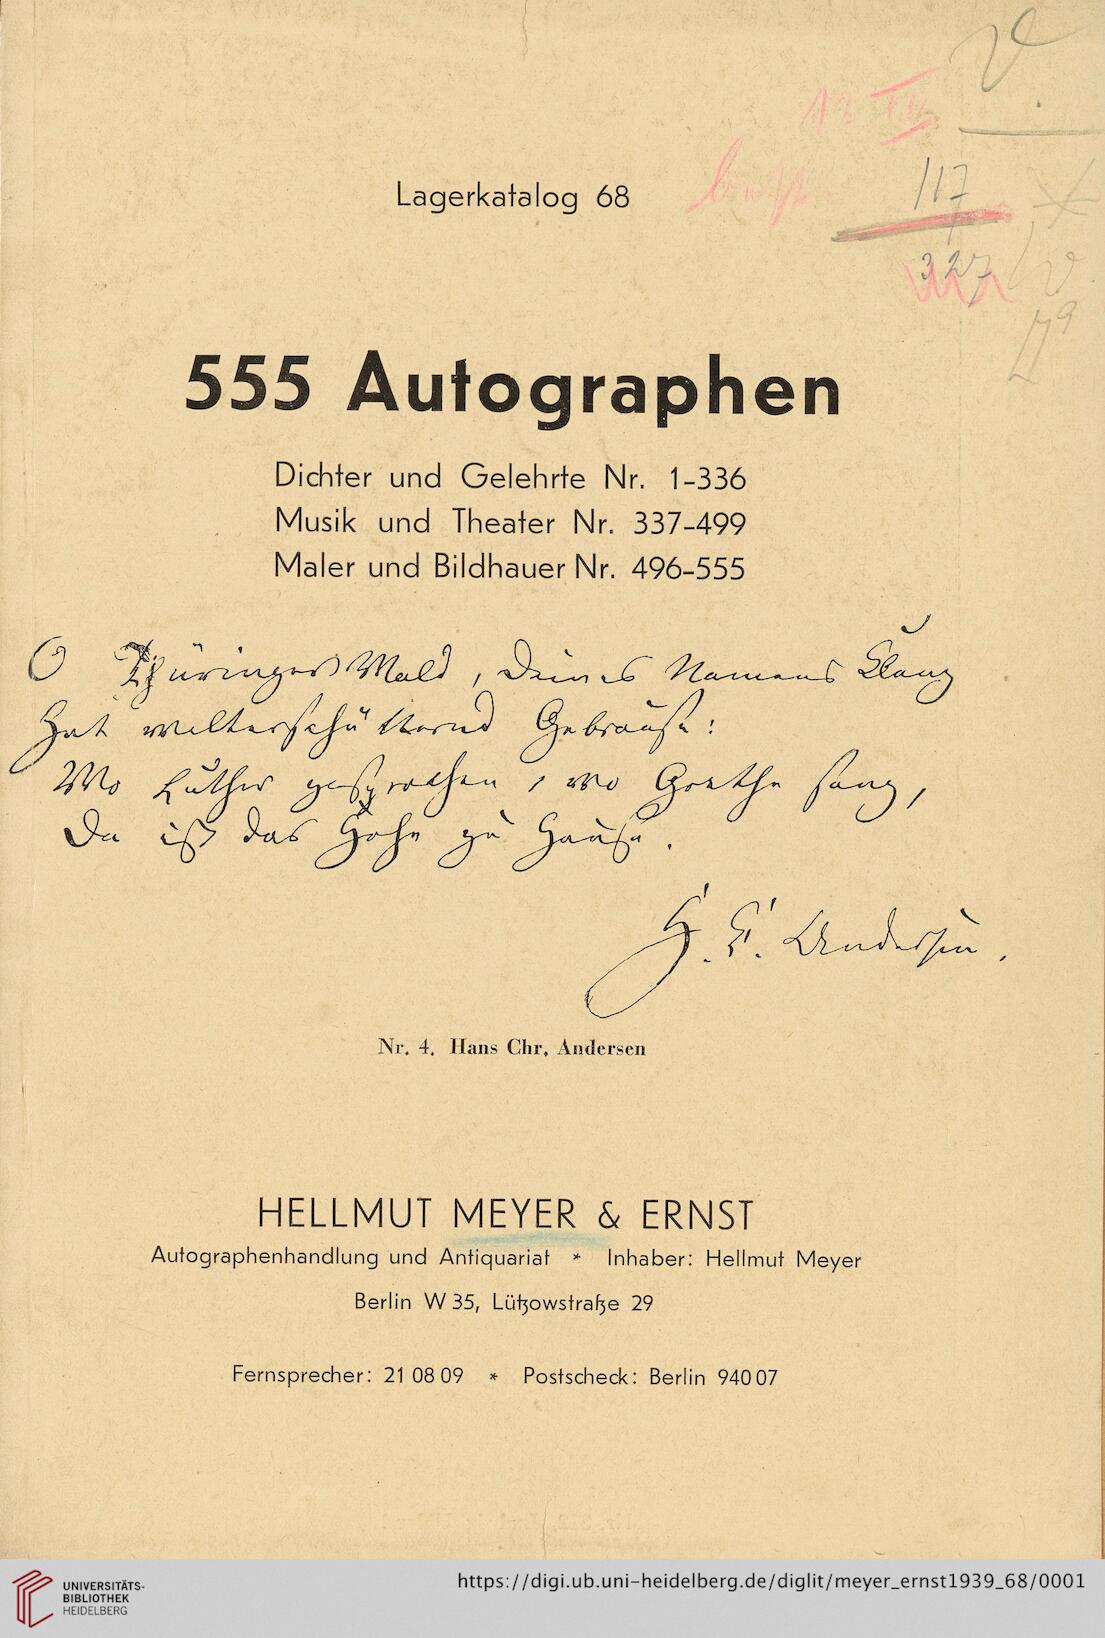 12 IV
117
Lagerkatalog 68
327
555 Autographen
Dichter und Gelehrte Nr. 1-336
Musik und Theater Nr. 337-499
Maler und Bildhauer Nr. 496-555
O Thüringer Wald, Deines Namens Klang
Hat welterschütternd Gebrause:
Wo Luther gesprochen, wo Goethe sang,
Da ist das Hohe zu Hause.
H. C. Andersen.
Nr. 4. Hans Chr. Andersen
HELLMUT MEYER & ERNST
Autographenhandlung und Antiquariat * Inhaber: Hellmut Meyer
Berlin W 35, Lützowstraße 29
Fernsprecher: 21 08 09 * Postscheck: Berlin 940 07
UNIVERSITÄTS-
BIBLIOTHEK
HEIDELBERG
https://digi.ub.uni-heidelberg.de/diglit/meyer_ernst1939_68/0001